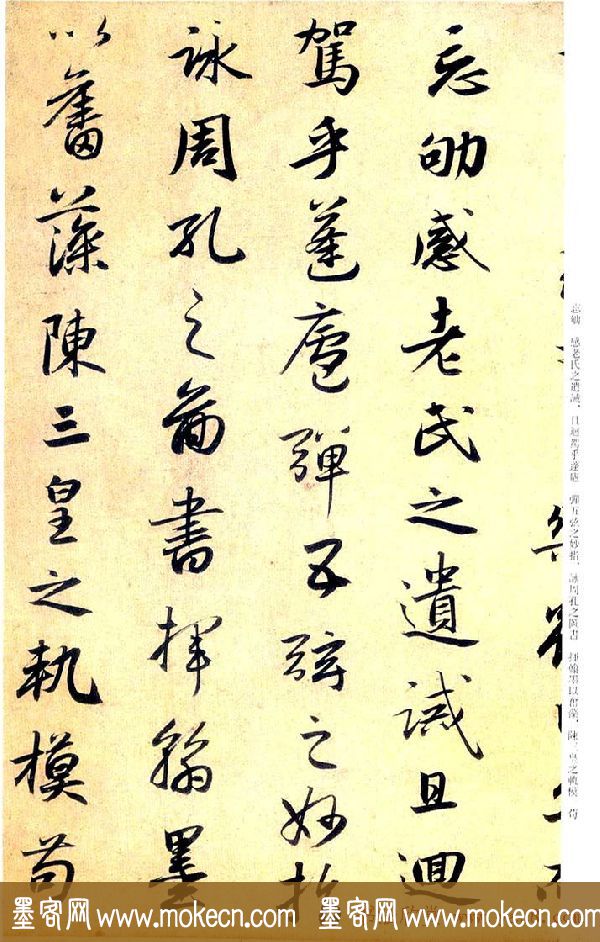 忘劬感老氏之遺誡且迴
駕乎蓬廬彈五弦之妙指
詠周孔之啚書揮翰墨
以奮藻陳三皇之軌模苟
忘劬 感老氏之遺誡、且迴駕乎蓬廬 彈五弦之妙指、詠周孔之圖書 揮翰墨以奮藻、陳三皇之軌模 苟
墨客网 www.mokecn.com 墨客网 www.mokecn.com